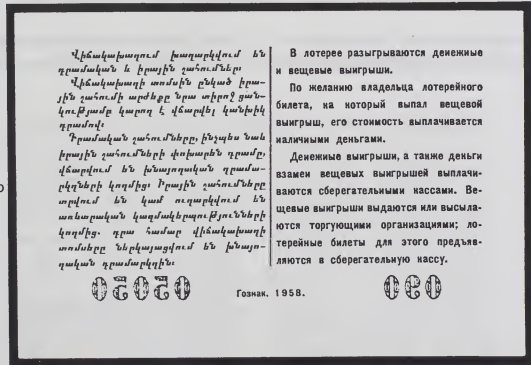 Վիճակախաղում խաղարկվում են
դրամական և իրային շահումներ։
Վիճակախաղի տոմսին ընկած իրա-
յին շահումի արժեքը նրա տիրոջ ցան-
կությամբ կարող է վճարվել կանխիկ
դրամով։
Դրամական շահումները, ինչպես նաև
իրային շահումների փոխարեն դրամը,
վճարվում են խնայողական դրամա-
րկղների կողմից։ Իրային շահումները
տրվում են կամ ուղարկվում են
առևտրական կազմակերպությունների
կողմից. դրա համար վիճակախաղի
տոմսերը ներկայացվում են խնայո-
ղական դրամարկղին։
В лотерее разыгрываются денежные
и вещевые выигрыши.
По желанию владельца лотерейного
билета, на который выпал вещевой
выигрыш, его стоимость выплачивается
наличными деньгами.
Денежные выигрыши, а также деньги
взамен вещевых выигрышей выплачи-
ваются сберегательными кассами. Ве-
щевые выигрыши выдаются или высыла-
ются торгующими организациями; ло-
терейные билеты для этого предъяв-
ляются в сберегательную кассу.
05050
Гознак. 1958.
090